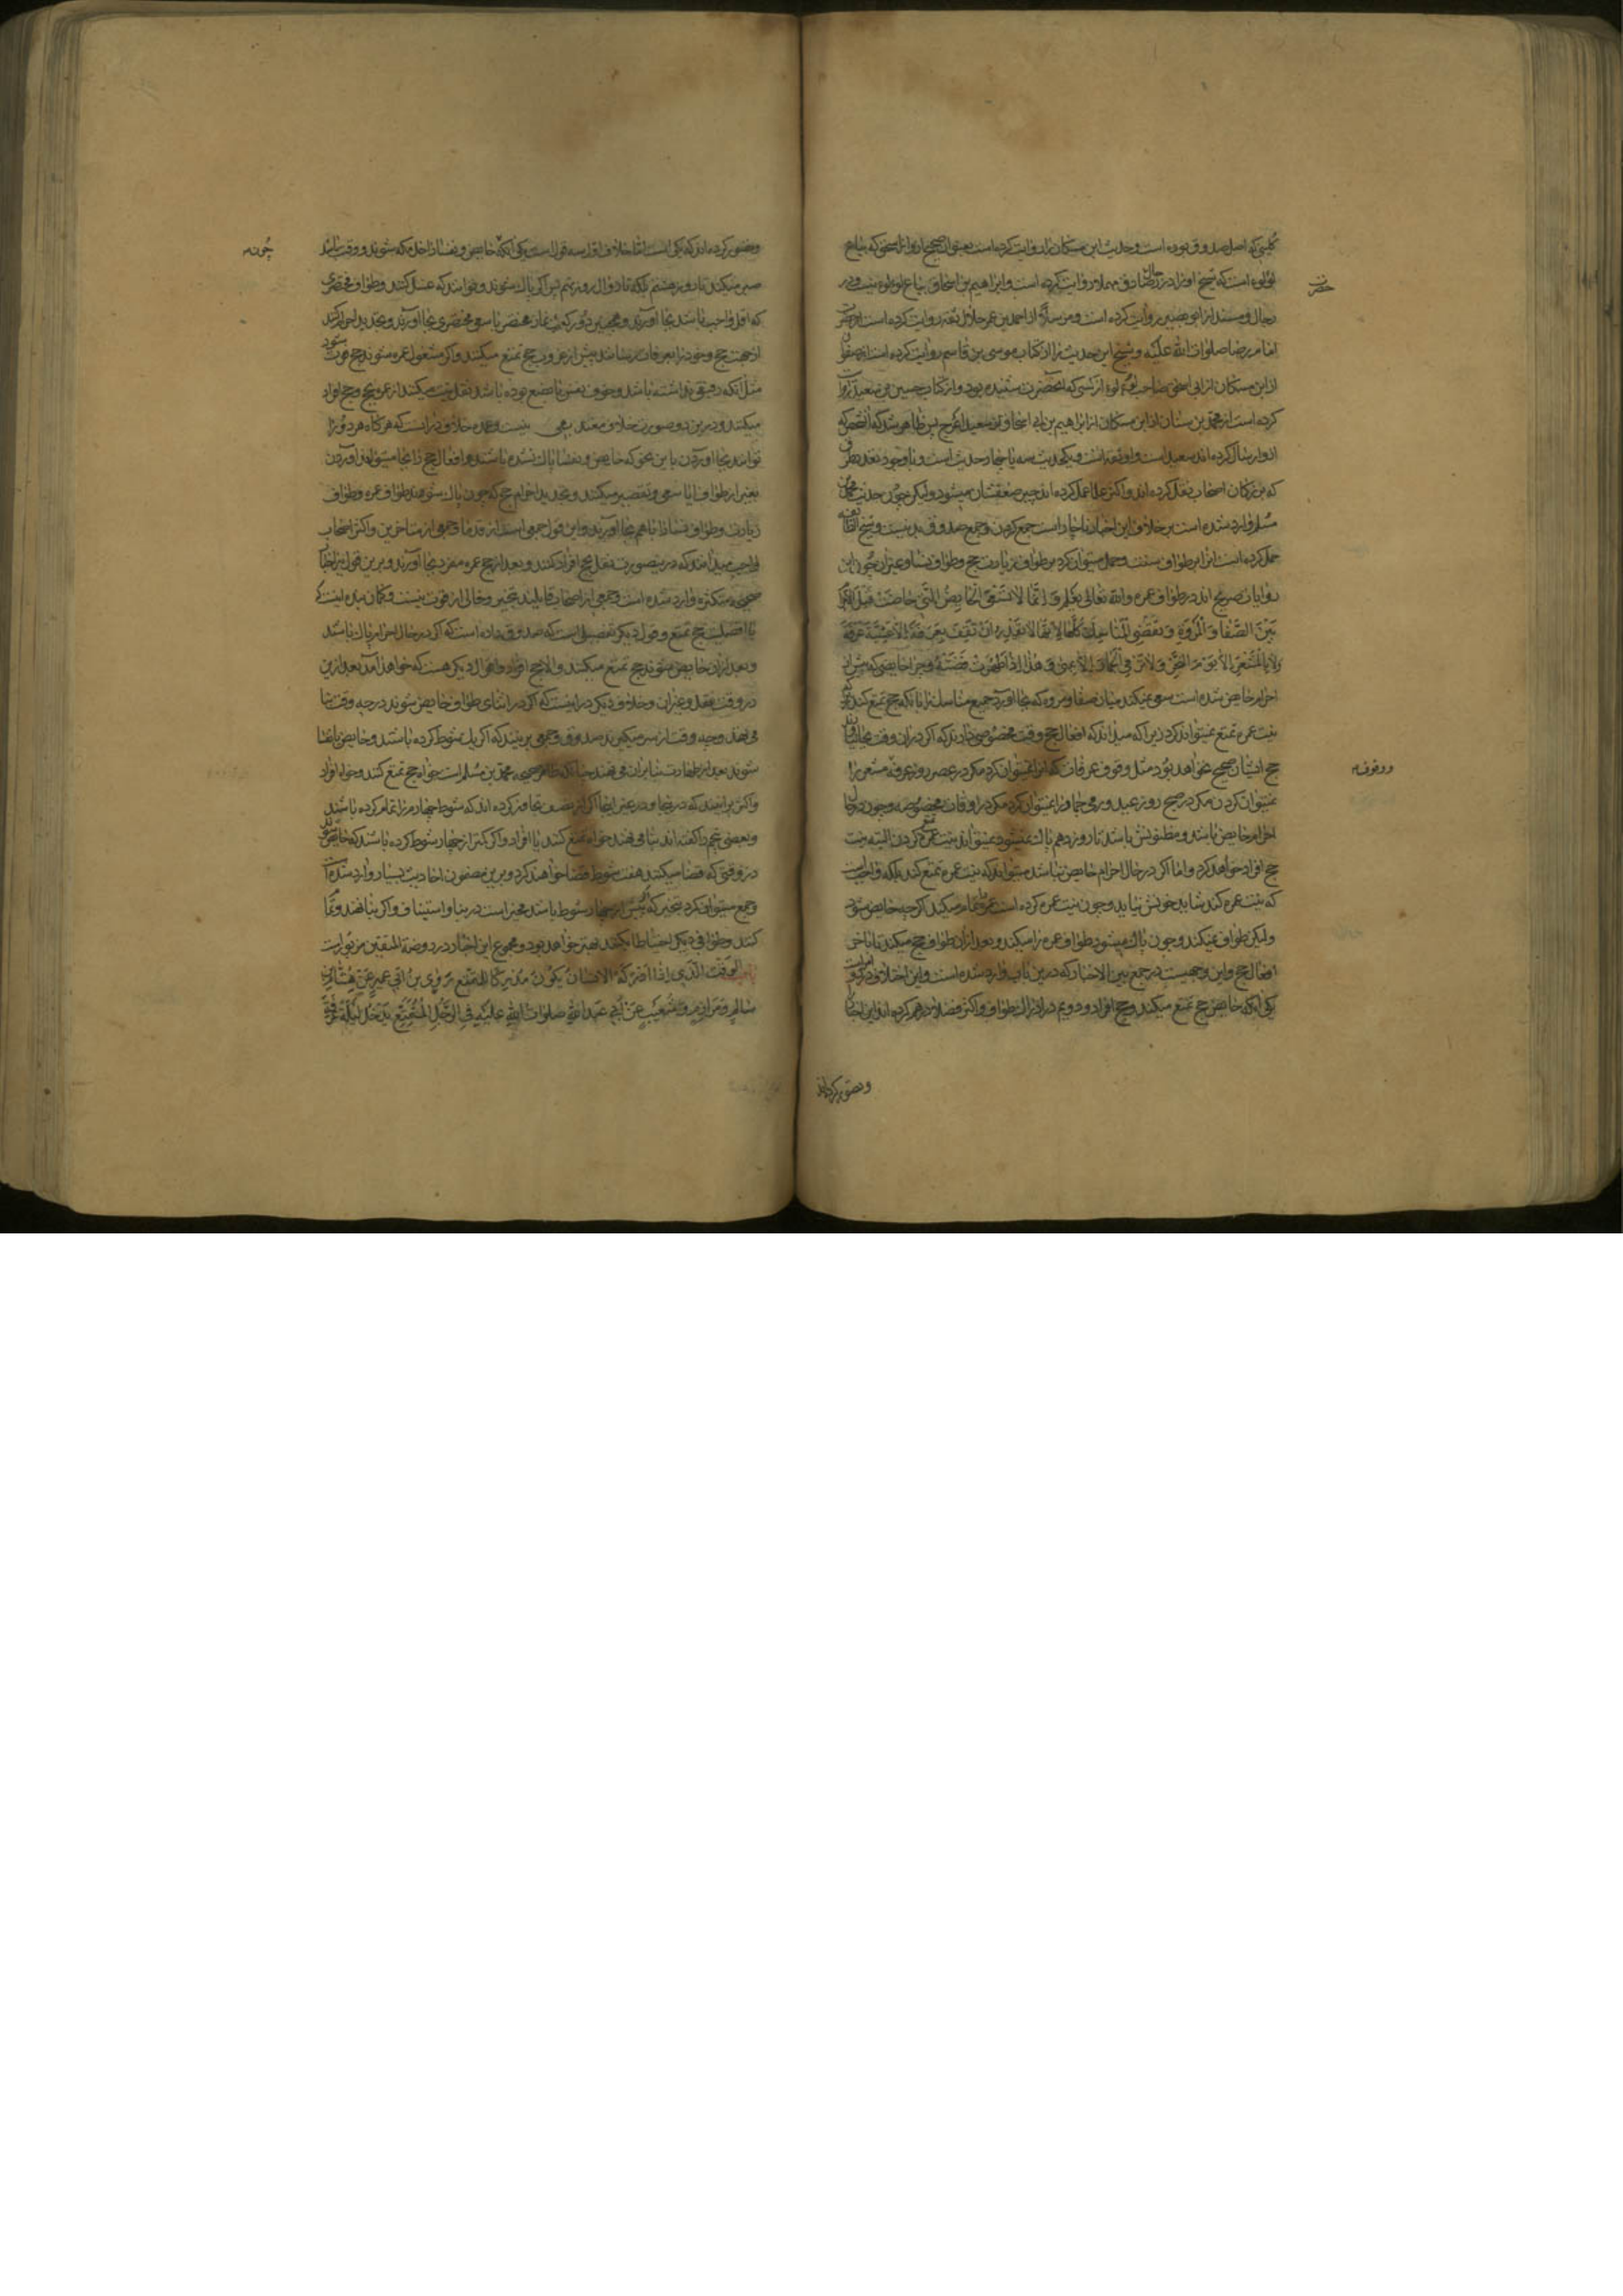 کلینی که اصل صدوق بوده است و حدیث ابن مسکان را روایت کرده است بعنوان صحیح از ابو اسحق که بیاع
لؤلوء است که شیخ او را در رجال صادق مهملا روایت کرده است و ابراهیم بن اسحاق بیاع لؤلوء نیست و در
حضرت
رجال و مسند از ابو بصیر روایت کرده است و مرسلا از احمد بن عمر حلال ثقه روایت کرده است از حضرت
امام رضا صلوات الله علیه و شیخ این حدیث را از کتاب موسی بن قاسم روایت کرده است از صفوان
از ابن مسکان از ابی اسحق صاحب لؤلوء از کسی که از آنحضرت شنیده بود و از کتاب حسین بن سعید روایت
کرده است از محمد بن سنان از ابن مسکان از ابراهیم بن ابی اسحاق از سعید اعرج پس ظاهر شد که آن شخص که
ازو ارسال کرده اند سعید است و او ثقه است و یکحدیث سه یا چهار حدیث است و با وجود تعدد طرق
که بزرگان اصحاب نقل کرده اند و اکثر علما عمل کرده اند جبر ضعفشان میشود ولیکن چون حدیث محمد بن
مسلم وارد شده است بر خلاف این اخبار ناچار است جمع کردن و جمع صدوق بد نیست و شیخ الطائفه
حمل کرده است آنرا بر طواف سنت و حمل میتوان کرد بر طواف زیارت حج و طواف نسا و غیر آن چون این
روایات صریح اند در طواف عمره والله تعالی یعلم وَ اِنَّمَا لَا تَسْعَی الْحَائِضُ الَّتِی حَاضَتْ قَبْلَ الْاِحْرَامِ
بَیْنَ الصَّفَا وَ الْمَرْوَةِ وَ تَقْضِی الْمَنَاسِكَ کُلَّهَا لِاَنَّهَا لَا تَقْدِرُ اَنْ تَقِفَ بِعَرَفَةَ اِلَّا عَشِیَّةَ عَرَفَةَ
وَلَا بِالْمَشْعَرِ اِلَّا یَوْمَ النَّحْرِ وَلَا تَرْمِیَ الْجِمَارَ اِلَّا بِمِنًی وَ هٰذَا اِذَا طَهُرَتْ قَضَتْهُ و چرا حایضی که پیش از
احرام حایض شده است سعی نمیکند میان صفا و مروه که بجا آورد جمیع مناسک را تا آنکه حج تمتع کند
نیت عمره تمتع نمیتواند کرد زیرا که میداند که افعال حج وقت مخصوصی دارند که اگر در آن وقت بجا نیاورند
حج ایشان صحیح نخواهد بود مثل وقوف عرفات که آنرا نمیتوان کرد مگر در عصر روز عرفه مشعر را
و وقوف
نمیتوان کردن مگر در صبح روز عید و رمی جمار را نمیتوان کرد مگر در اوقات مخصوصه و چون در حال
احرام حایض باشد و مظنونش باشد تا روز دهم پاک نمیشود نمیتواند نیت عمره تمتع کردن البته نیت
حج افراد خواهد کرد و اما اگر در حال احرام حایض نباشد میتواند که نیت عمره تمتع کند بلکه واجبست
که نیت عمره کند شاید خونش نیاید و چون نیت عمره کرده است عمره را تمام میکند اگر چه حایض شود
ولیکن طواف نمیکند و چون پاک میشود طواف عمره را میکند و بعد از آن طواف حج میکند تا باخر
افعال حج و این وجهیست در جمع بین الاخبار که درین باب وارد شده است و این اختلاف در دو امر است
یکی آنکه حایض حج تمتع میکند یا حج افراد و دویم در ادراک طواف و اکثر فضلا درهم کرده اند این اخبار را
و تصور کرده اند
و تصور کرده اند که یکی است اما خلاف اول سه قول است یکی آنکه حایض و نفسا داخل مکه شوند و وقت باشد
چون
صبر میکند تا روز هشتم بلکه تا زوال روز نهم پس اگر پاک شوند و توانند که غسل کنند و طواف مختصری
که اقل واجب باشد بجا آورند و همچنین دو رکعت نماز مختصر با سعی مختصری بجا آورند و تجدید احرام کنند
از جهت حج و خود را بعرفات رسانند پیش از غروب حج تمتع میکنند و اگر مشغول عمره شوند حج فوت شود
مثل آنکه رفیقی نداشته باشد و خوف نفس یا بضع بوده باشد نقل نیت میکنند از عمره بحج و حج افراد
میکنند و درین دو صورت خلاف معتد بهی نیست و عمده خلاف در آنست که هر گاه هر دو را
توانند بجا آوردن باین نحو که حایض و نفسا پاک نشده باشند و افعال حج را بجا میتوانند آوردن
بغیر از طواف آیا سعی و تقصیر میکنند و تجدید احرام حج که چون پاک شوند طواف عمره و طواف
زیارت و طواف نسا را با هم بجا آورند و این قول جمعی است از قدما و جمعی از متاخرین و اکثر اصحاب
واجب میدانند که درین صورت نقل بحج افراد کنند و بعد از حج عمره مفرده بجا آورند و برین قول نیز اخبار
صحیحه متکثره وارد شده است و جمعی از اصحاب قایلند بتخییر و خالی از قوت نیست و گمان بنده اینست که
با افضلیت حج تمتع و قول دیگر تفصیلی است که صدوق داده است که اگر در حال احرام پاک باشند
و بعد از آن حایض شوند حج تمتع میکنند و الا حج افراد و اقوال دیگر هست که خواهد آمد بعد ازین
در وقت نقل و غیر آن و خلاف دیگر در اینست که اگر در اثنای طواف حایض شوند در چه وقت بنا
می نهند و چه وقت از سر میگیرند صدوق و جمعی بر اینند که اگر یک شوط کرده باشند و حایض یا نفسا
شوند بعد از طهارت بنا بر آن می نهند چنانکه ظاهر صحیحه محمد بن مسلم است خواه حج تمتع کنند و خواه افراد
و اکثر بر اینند که در اینجا و در غیر اینجا اگر از نصف تجاوز کرده اند که شوط چهارم را تمام کرده باشند
و بعضی پنجم را گفته اند بنا می نهند خواه تمتع کنند یا افراد و اگر کمتر از چهار شوط کرده باشند که حایض شوند
در وقتی که قضا میکنند هفت شوط قضا خواهند کرد و برین مضمون احادیث بسیار وارد شده است
و جمع میتوان کرد بتخییر که اگر پیش از چهار شوط باشد مخیر است در بنا و استیناف و اگر بنا نهند و تمام
کنند و طوافی دیگر احتیاطا بکنند بهتر خواهد بود و مجموع این اخبار در روضة المتقین مزبور است
بَابُ الْوَقْتِ الَّذِی اِذَا اَدْرَکَهُ الْاِنْسَانُ یَکُونُ مُدْرِکًا لِلتَّمَتُّعِ رَوَی بْنُ اَبِی عُمَیْرٍ عَنْ هِشَامِ بْنِ
سَالِمٍ وَ مُرَازِمٍ وَ شُعَیْبٍ عَنْ اَبِی عَبْدِ اللهِ صَلَوَاتُ اللهِ عَلَیْهِ فِی الرَّجُلِ الْمُتَمَتِّعِ یَدْخُلُ لَیْلَةَ عَرَفَةَ